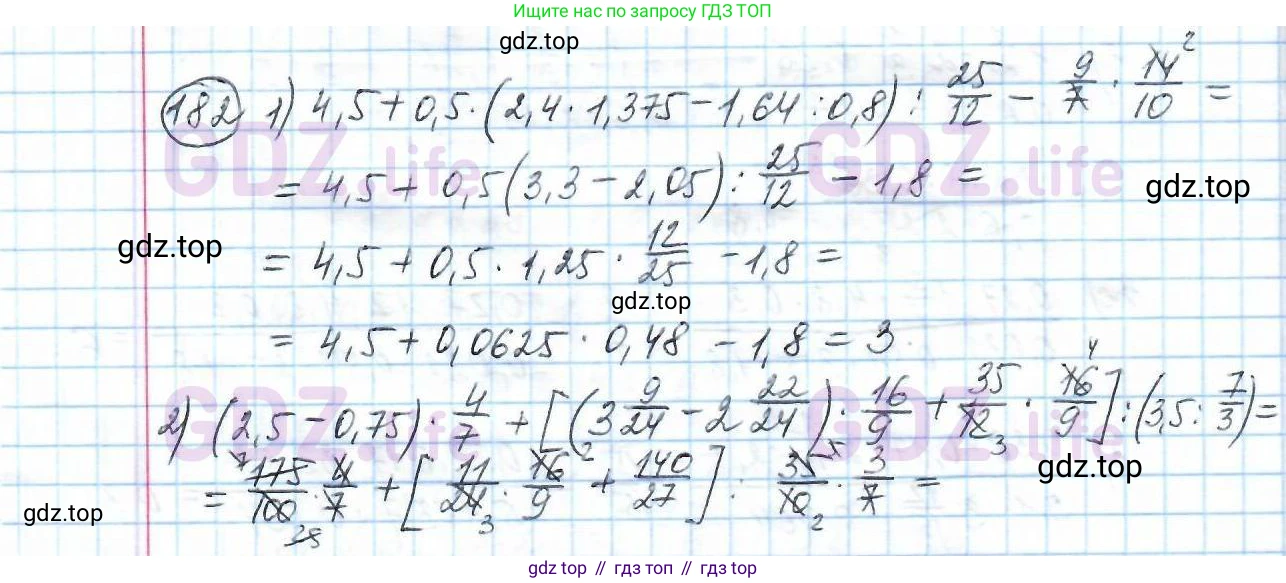 Ищите нас по запросу ГДЗ ТОП
gdz.top
182 1) 4,5 + 0,5 · (2,4 · 1,375 − 1,64 : 0,8) : 25/12 − 9/7 · 14/10 2 =
GDZ.life GDZ.life
= 4,5 + 0,5 (3,3 − 2,05) : 25/12 − 1,8 =
gdz.top
gdz.top
= 4,5 + 0,5 · 1,25 · 12/25 − 1,8 =
gdz.top
= 4,5 + 0,0625 · 0,48 − 1,8 = 3
GDZ.life GDZ.life
2) (2,5 − 0,75) · 4/7 + [(3 9/24 − 2 22/24) · 16/9 + 35/12 3 · 16 4/9] : (3,5 : 7/3) =
gdz.top
= 7 175/100 25 · 4/7 + [11/24 3 · 16 2/9 + 140/27] : 35/10 2 · 3/7 =
gdz.top
gdz.top // гдз топ // гдз top